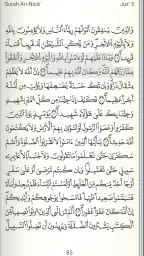 Surah An-Nisā' Juz' 5
وَٱلَّذِينَ يُنفِقُونَ أَمۡوَٰلَهُمۡ رِئَآءَ ٱلنَّاسِ وَلَا يُؤۡمِنُونَ بِٱللَّهِ
وَلَا بِٱلۡيَوۡمِ ٱلۡأٓخِرِۗ وَمَن يَكُنِ ٱلشَّيۡطَٰنُ لَهُۥ قَرِينٗا فَسَآءَ قَرِينٗا ٣٨
وَمَاذَا عَلَيۡهِمۡ لَوۡ ءَامَنُواْ بِٱللَّهِ وَٱلۡيَوۡمِ ٱلۡأٓخِرِ وَأَنفَقُواْ
مِمَّا رَزَقَهُمُ ٱللَّهُۚ وَكَانَ ٱللَّهُ بِهِمۡ عَلِيمًا ٣٩ إِنَّ ٱللَّهَ لَا يَظۡلِمُ
مِثۡقَالَ ذَرَّةٖۖ وَإِن تَكُ حَسَنَةٗ يُضَٰعِفۡهَا وَيُؤۡتِ مِن لَّدُنۡهُ
أَجۡرًا عَظِيمٗا ٤٠ فَكَيۡفَ إِذَا جِئۡنَا مِن كُلِّ أُمَّةِۭ بِشَهِيدٖ
وَجِئۡنَا بِكَ عَلَىٰ هَٰٓؤُلَآءِ شَهِيدٗا ٤١ يَوۡمَئِذٖ يَوَدُّ ٱلَّذِينَ
كَفَرُواْ وَعَصَوُاْ ٱلرَّسُولَ لَوۡ تُسَوَّىٰ بِهِمُ ٱلۡأَرۡضُ وَلَا يَكۡتُمُونَ
ٱللَّهَ حَدِيثٗا ٤٢ يَٰٓأَيُّهَا ٱلَّذِينَ ءَامَنُواْ لَا تَقۡرَبُواْ ٱلصَّلَوٰةَ وَأَنتُمۡ
سُكَٰرَىٰ حَتَّىٰ تَعۡلَمُواْ مَا تَقُولُونَ وَلَا جُنُبًا إِلَّا عَابِرِي
سَبِيلٍ حَتَّىٰ تَغۡتَسِلُواْۚ وَإِن كُنتُم مَّرۡضَىٰٓ أَوۡ عَلَىٰ سَفَرٍ
أَوۡ جَآءَ أَحَدٞ مِّنكُم مِّنَ ٱلۡغَآئِطِ أَوۡ لَٰمَسۡتُمُ ٱلنِّسَآءَ فَلَمۡ تَجِدُواْ مَآءٗ
فَتَيَمَّمُواْ صَعِيدٗا طَيِّبٗا فَٱمۡسَحُواْ بِوُجُوهِكُمۡ وَأَيۡدِيكُمۡۗ
إِنَّ ٱللَّهَ كَانَ عَفُوًّا غَفُورًا ٤٣ أَلَمۡ تَرَ إِلَى ٱلَّذِينَ أُوتُواْ نَصِيبٗا مِّنَ
ٱلۡكِتَٰبِ يَشۡتَرُونَ ٱلضَّلَٰلَةَ وَيُرِيدُونَ أَن تَضِلُّواْ ٱلسَّبِيلَ ٤٤
85